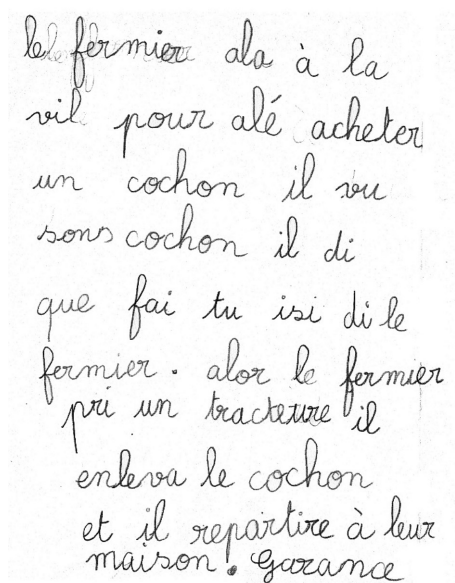 le fermier ala à la
vil pour alé acheter
un cochon il vu
sons cochon il di
que fai tu isi di le
fermier. alor le fermier
pri un tracteure il
enleva le cochon
et il repartire à leur
maison! Garance